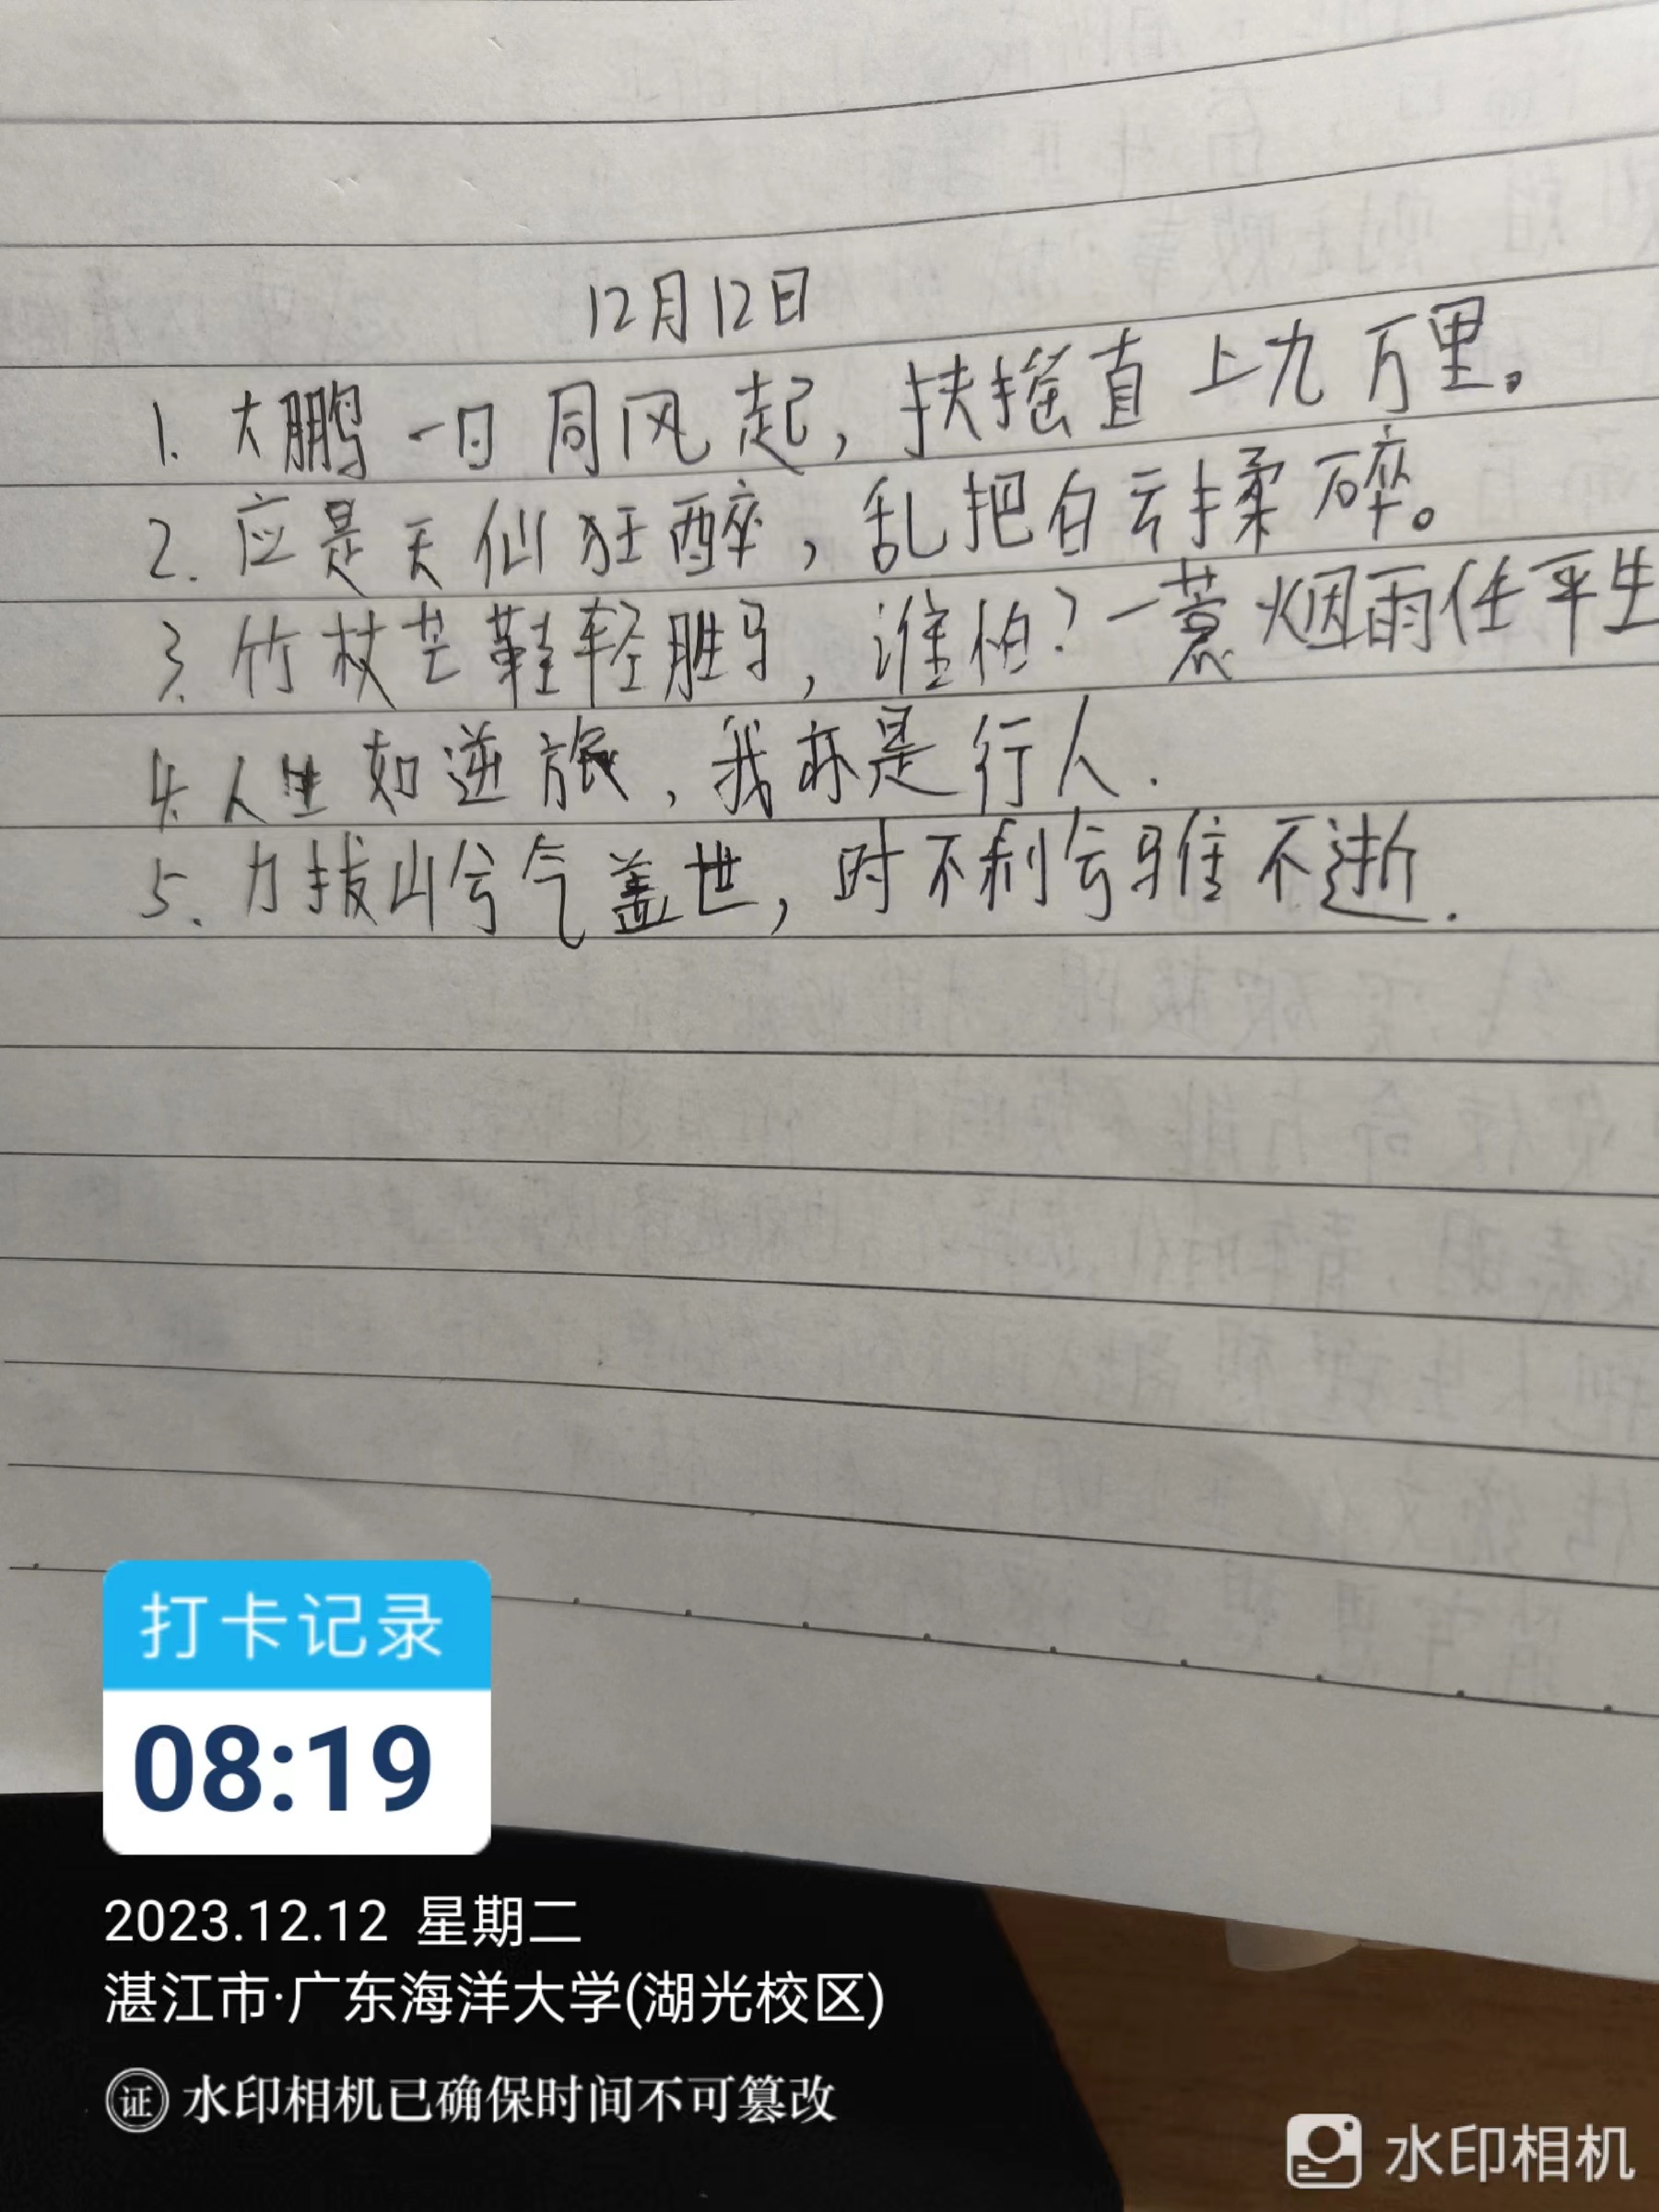 12月12日
1. 大鹏一日同风起，扶摇直上九万里。
2. 应是天仙狂醉，乱把白云揉碎。
3. 竹杖芒鞋轻胜马，谁怕？一蓑烟雨任平生
4. 人生如逆旅，我亦是行人.
5. 力拔山兮气盖世，时不利兮骓不逝.
打卡记录
08:19
2023.12.12 星期二
湛江市·广东海洋大学(湖光校区)
证 水印相机已确保时间不可篡改
水印相机